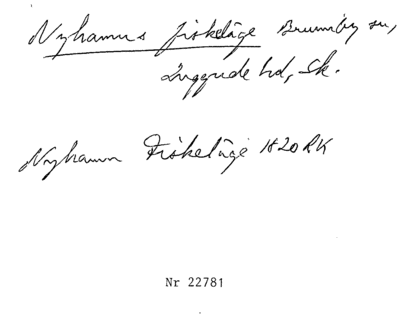 Nyhamns fiskeläge Brunnby sn,
Luggude hd, Sk.
Nyhamn Fiskeläge 1820 RK
Nr 22781